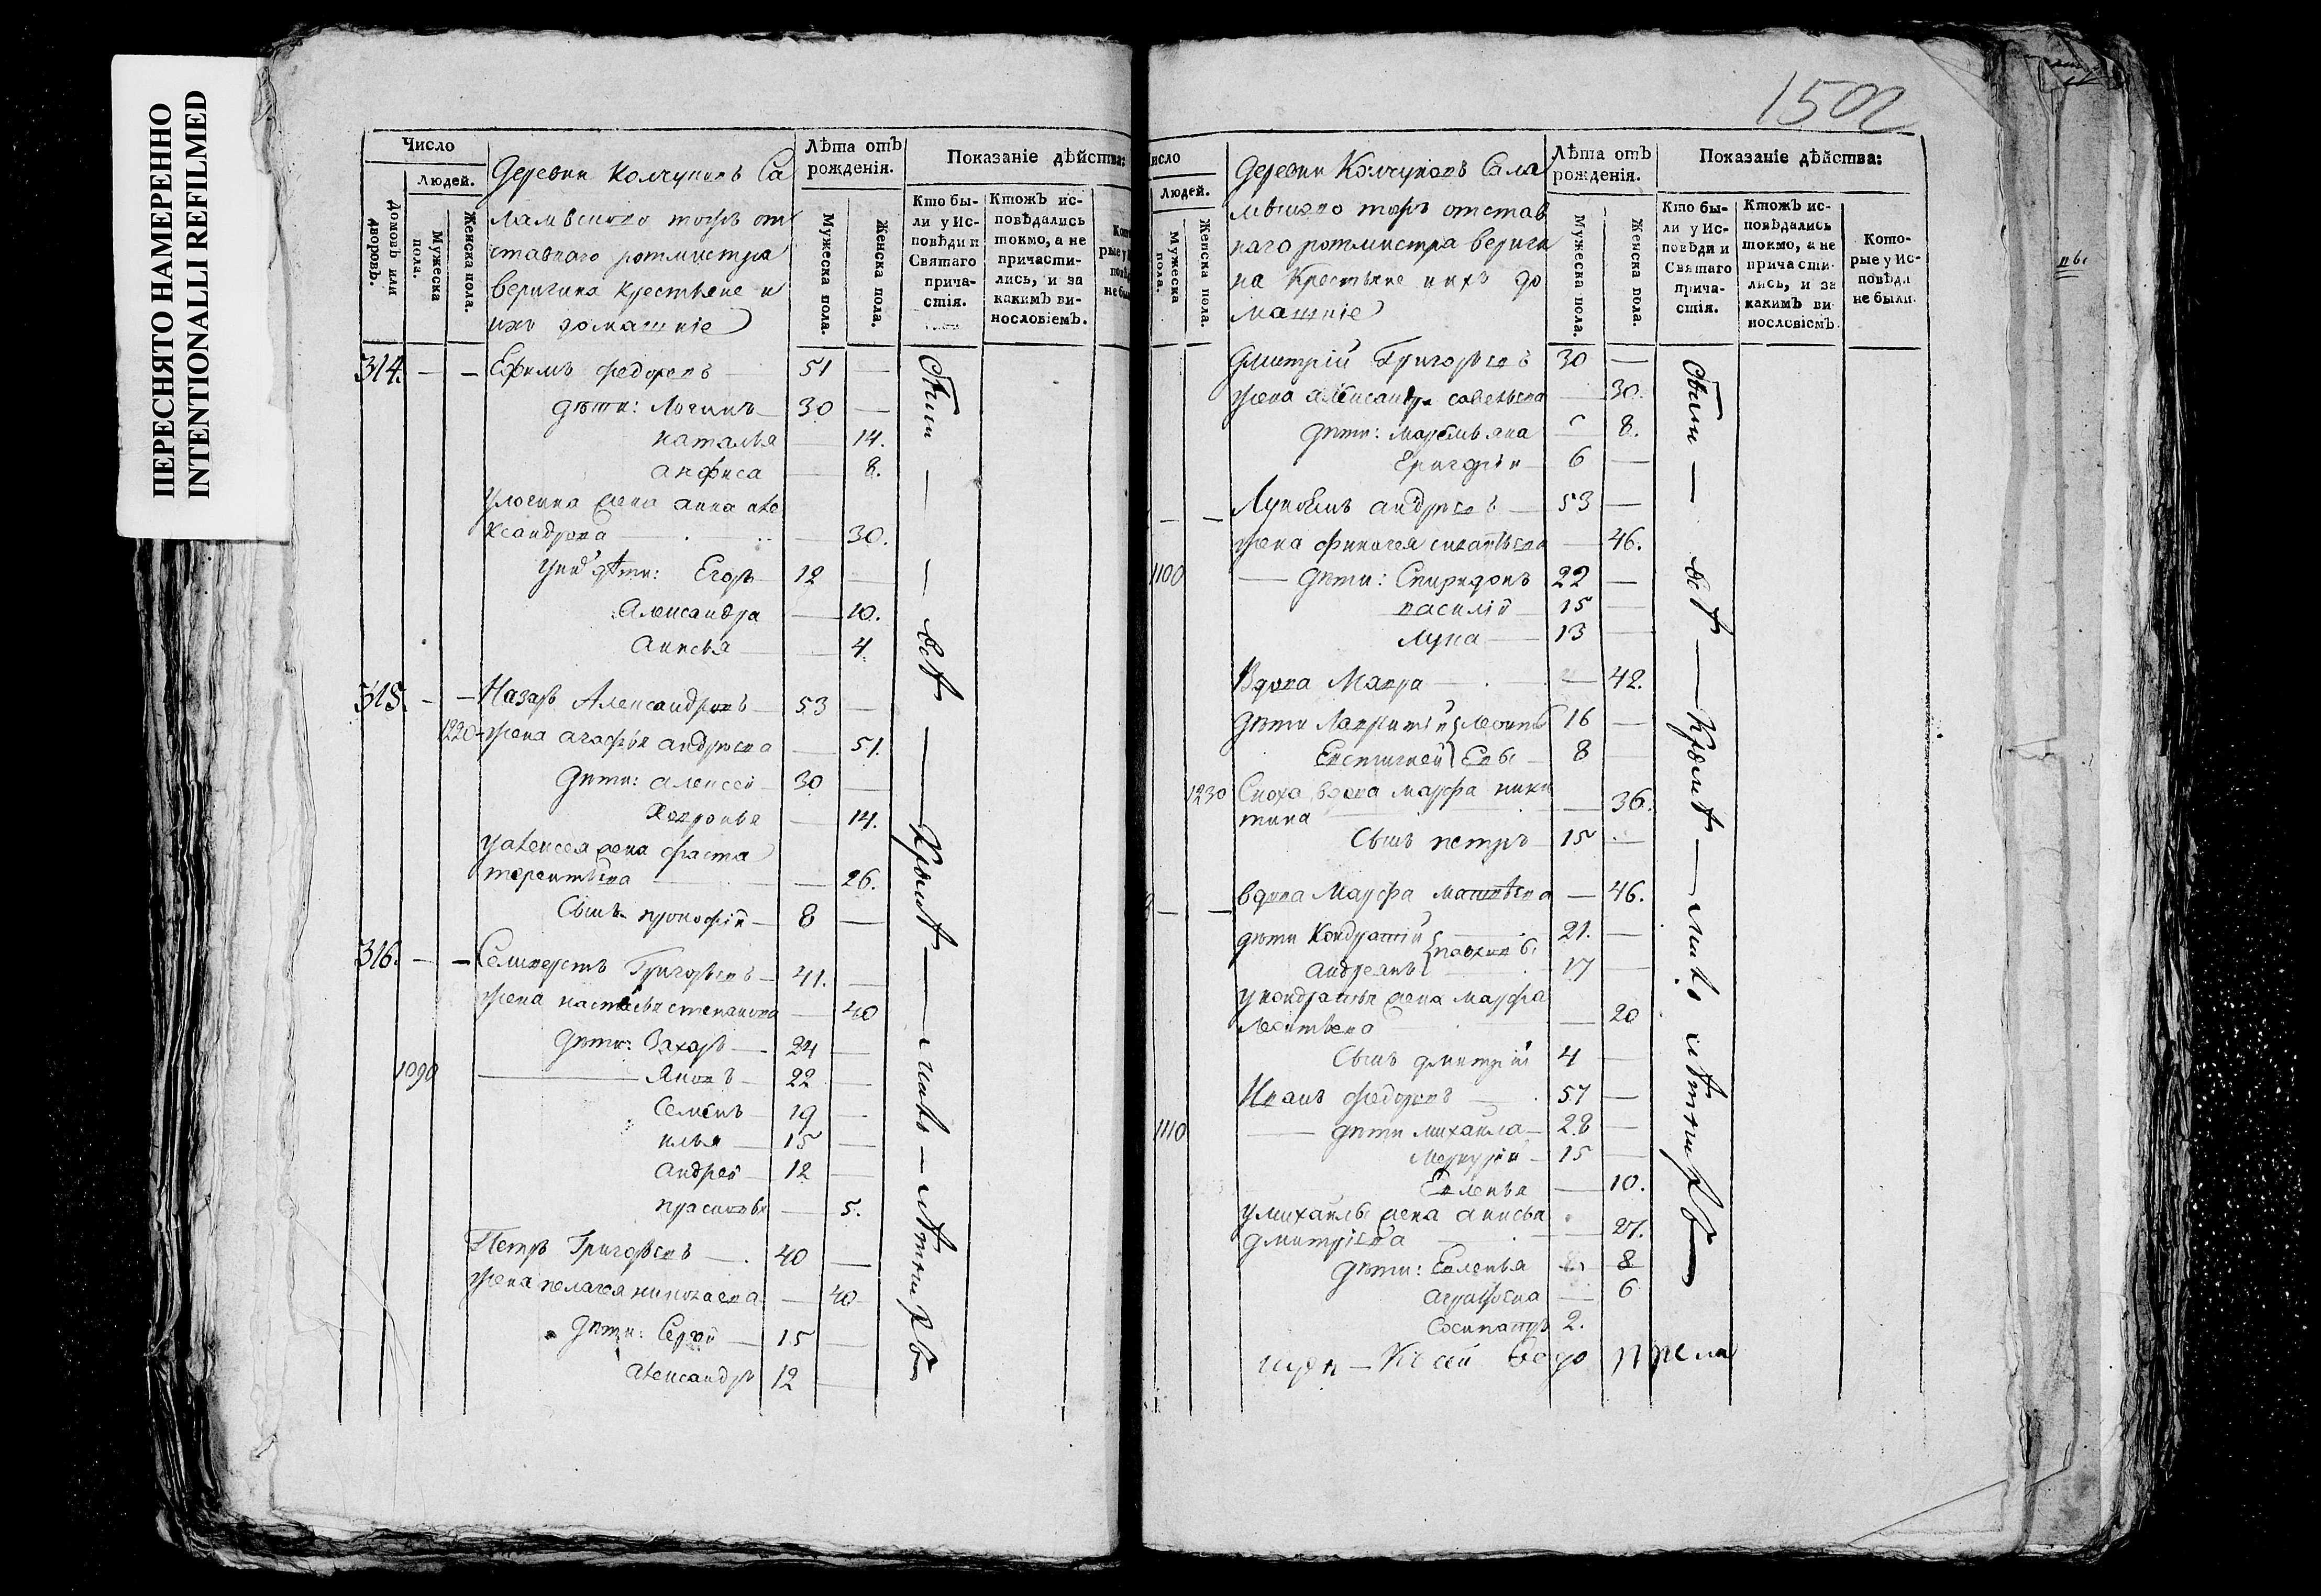 ПЕРЕСНЯТО НАМЕРЕННО
INTENTIONALLI REFILMED
Число
Людей.
Домовъ или дворовъ.
Мужеска пола.
Женска пола.
Деревни Колчуновъ Са
ламъсково тожъ от
ставнаго ротмистра
веригина крестьяне и
ихъ домашніе
Лѣта отъ рожденія.
Мужеска пола.
Женска пола.
Показаніе дѣйства:
Кто бы-
ли у Ис-
повѣди и
Святаго
прича-
стія.
Ктожъ ис-
повѣдались
токмо, а не
причасти-
лись, и за
какимъ ви-
нословіемъ.
314. — — Ефимъ федоровъ 51 —
дѣти: Логинъ 30 —
наталья — 14.
анфиса — 8.
у логина жена анна але
ксандрова — 30.
у них дѣти: Егоръ 12 —
Александра — 10.
Анисья — 4.
315. — — Назаръ Александровъ 53 —
1220 жена агафья андреева — 51.
дѣти: алексей 30 —
Хавронья — 14.
у алексея жена
терентьева — 26.
Сынъ прокофій 8 —
316. — — Селиверстъ Григорьевъ 41. —
жена настасья степанова — 40
дѣти: Захаръ 24 —
1090 Яковъ 22 —
Семенъ 19 —
илья 15 —
андрей 12 —
прасковья — 5.
Петръ Григорьевъ 40 —
жена пелагея николаева — 40
дѣти: Сергей 15 —
александръ 12 —
были — всѣ — Кромѣ — малолѣтнихъ
1502
Число
Людей.
Мужеска пола.
Женска пола.
Деревни Колчуновъ Сала
мъсково тожъ отстав
наго ротмистра вериги
на Крестьяне и ихъ до
машніе
Лѣта отъ рожденія.
Мужеска пола.
Женска пола.
Показаніе дѣйства:
Кто бы-
ли у Ис-
повѣди и
Святаго
прича-
стія.
Ктожъ ис-
повѣдались
токмо, а не
причасти-
лись, и за
какимъ ви-
нословіемъ.
Кото-
рые у Ис-
повѣди
не были.
Дмитрій Григорьевъ 30 —
жена александра савельева — 30.
дѣти: маремьяна — 8.
Григорій 6 —
андреевъ 53 —
жена — 46.
1100 дѣти: Спиридонъ 22 —
василій 15 —
Лука 13 —
Вдова Мавра — 42.
дѣти Лаврентій Леонть 16 —
Евстигней евы 8 —
1230 Сноха вдова марфа ники
тина — 36.
Сынъ петръ 15 —
вдова Марфа матвѣева — 46.
дѣти Кондратій 21. —
андреянъ 17 —
у кондратья жена марфа
леонтьева — 20
Сынъ дмитрій 4 —
Иванъ федоровъ 57 —
1110 дѣти михайла 28 —
Меркурій 15 —
Евленья — 10.
у михайлы жена анисья
дмитріева — 27.
дѣти: Евленья — 8
аграфена — 6
Сосипатръ 2.
были — всѣ — Кромѣ — мало лѣтнихъ